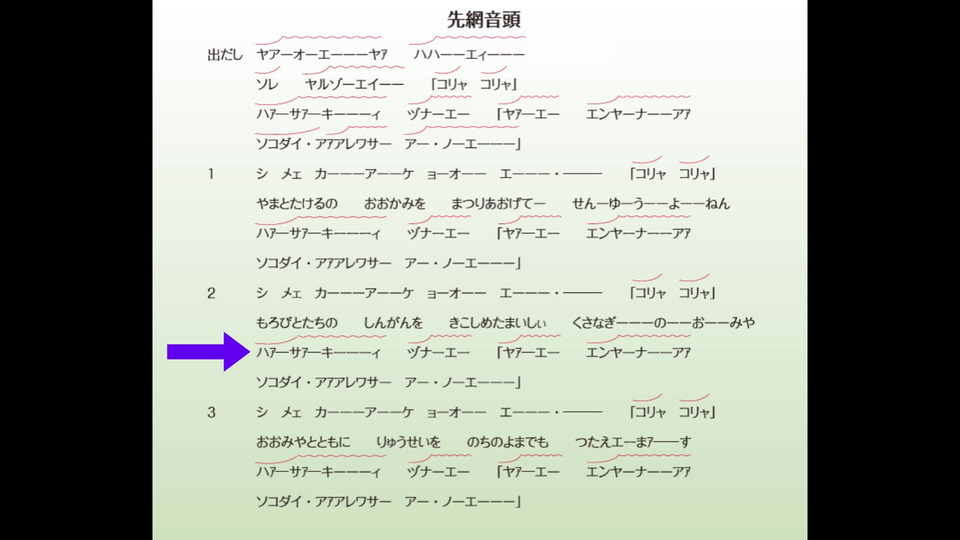 先網音頭
出だし ヤアーオーエーーーヤァ ハハーーエィーーー
ソレ ヤルゾーエイーー 「コリャ コリャ」
ハァーサァーキーーーィ ヅナーエー 「ヤァーエー エンヤーナーーアァ
ソコダイ・アァアレワサー アー・ノーエーーー」
1 シ メェ カーーーアーーケ ョーオーー エーーー・―― 「コリャ コリャ」
やまとたけるの おおかみを まつりあおげてー せんーゆーうーーよーーねん
ハァーサァーキーーーィ ヅナーエー 「ヤァーエー エンヤーナーーアァ
ソコダイ・アァアレワサー アー・ノーエーーー」
2 シ メェ カーーーアーーケ ョーオーー エーーー・―― 「コリャ コリャ」
もろびとたちの しんがんを きこしめたまいしぃ くさなぎーーーのーーおーーみや
ハァーサァーキーーーィ ヅナーエー 「ヤァーエー エンヤーナーーアァ
ソコダイ・アァアレワサー アー・ノーエーーー」
3 シ メェ カーーーアーーケ ョーオーー エーーー・―― 「コリャ コリャ」
おおみやとともに りゅうせいを のちのよまでも つたえエーまァ――す
ハァーサァーキーーーィ ヅナーエー 「ヤァーエー エンヤーナーーアァ
ソコダイ・アァアレワサー アー・ノーエーーー」